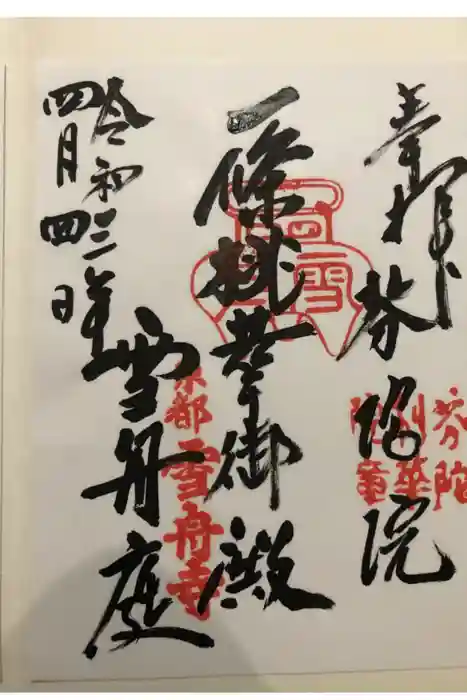 奉拝 芬陀院
一條御殿
雪舟庭
令和三年
四月四日
京都
雪舟寺
芬陀
利華